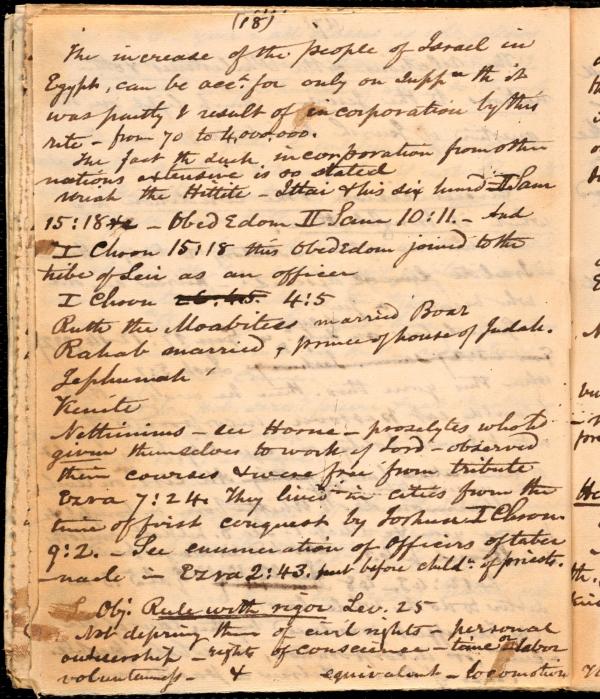 (18)
The increase of the people of Israel in
Egypt, can be acct for only on suppn th it
was partly & result of incorporation by this
rite - from 70 to 4,000,000.
The fact th such incorporation from other
nations extensive is so stated
Uriah the Hittite - Ittai & his six hund - II Sam
15:18 - Obed Edom II Sam 10:11. - And
I Chron 15:18 this Obed Edom joined to the
tribe of Levi as an officer
I Chron 26:45. 4:5
Ruth the Moabitess married Boaz
Rahab married a prince of house of Judah.
Jephunah
Kenite
Nethinims - see Horne - proselytes who had
given themselves to work of Lord - observed
their courses & were free from tribute
Ezra 7:24. They lived in cities from the
time of first conquest by Joshua I Chron.
9:2. - See enumeration of officers of taber
nacle in Ezra 2:43. next before childn of priests.
Obj. Rule with rigor Lev. 25
Not depriving them of civil rights - personal
ownership - rights of conscience - time or labor
voluntariness - & equivalent - locomotion